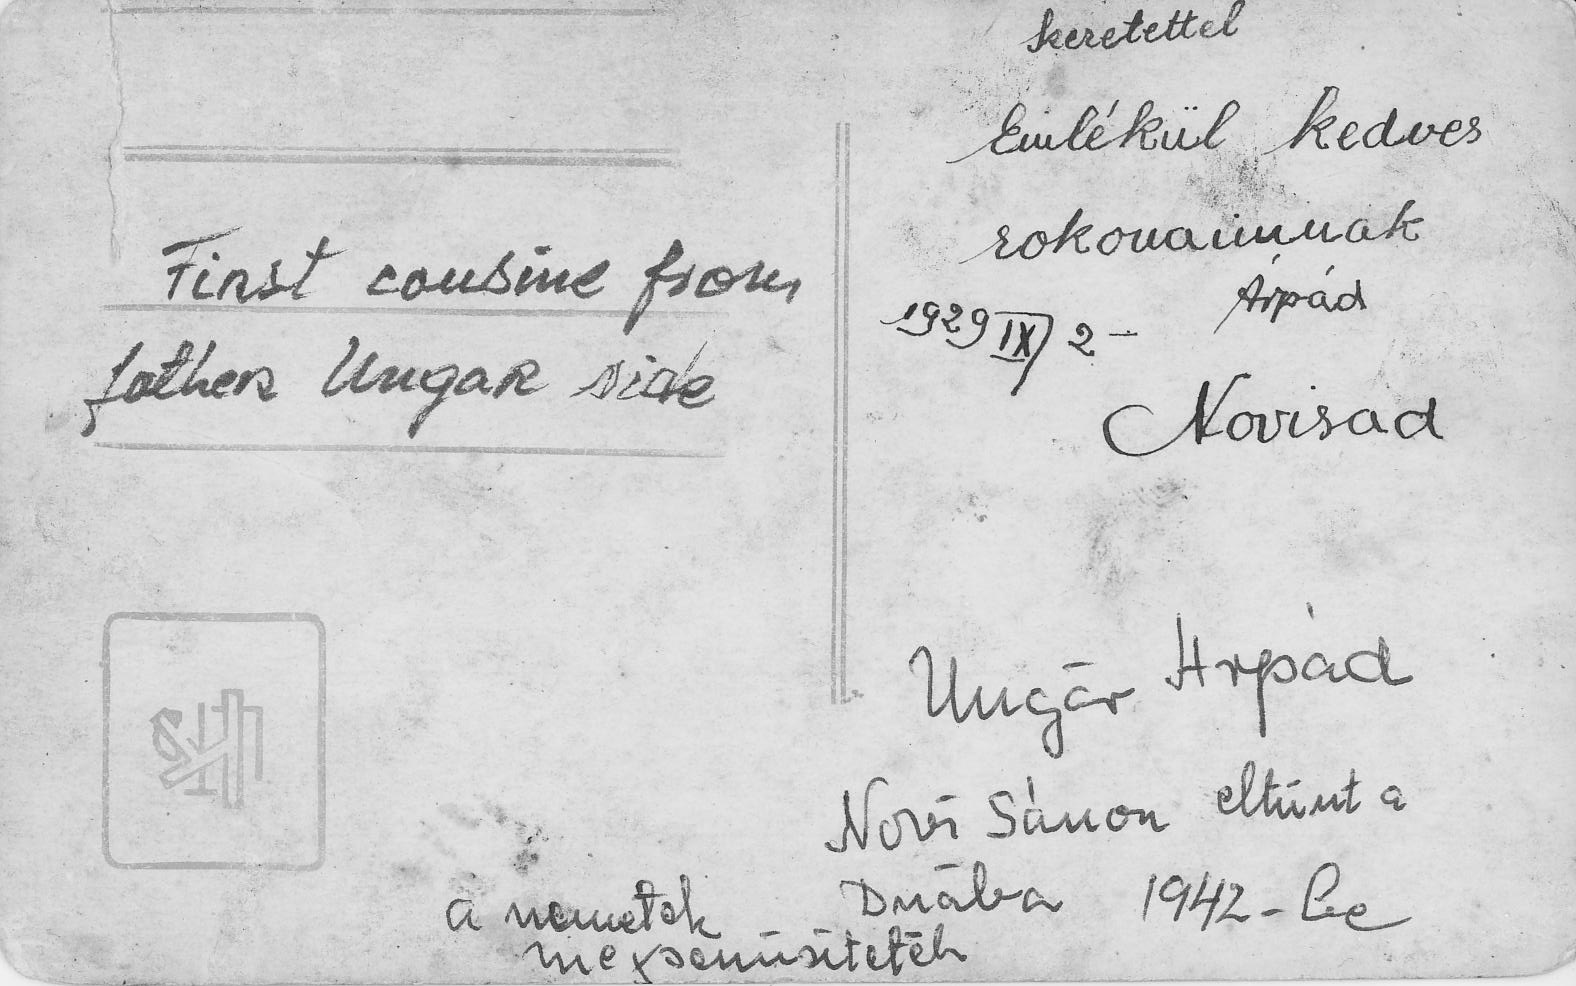 First cousine from
father Ungar side
Keretettel
Emlékül kedves
rokonaimnak
Árpád
1929 IX/2-
Novisad
Ungár Árpád
Novi Sánon eltünt a
Dnába 1942-be
a nemetek
megsemisiteték